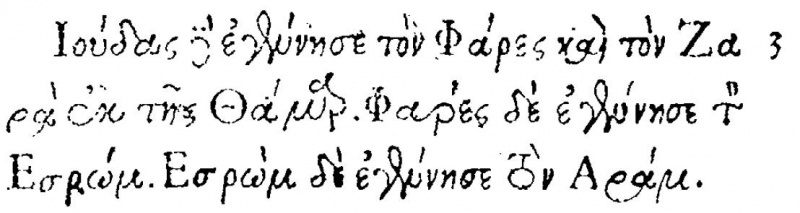 Ἰούδας δὲ ἐγέννησε τὸν Φάρες καὶ τὸν Ζα 3
ρὰ ἐκ τῆς Θάμαρ. Φαρὲς δὲ ἐγέννησε τὸν
Ἐσρώμ. Ἐσρὼμ δὲ ἐγέννησε τὸν Ἀράμ.